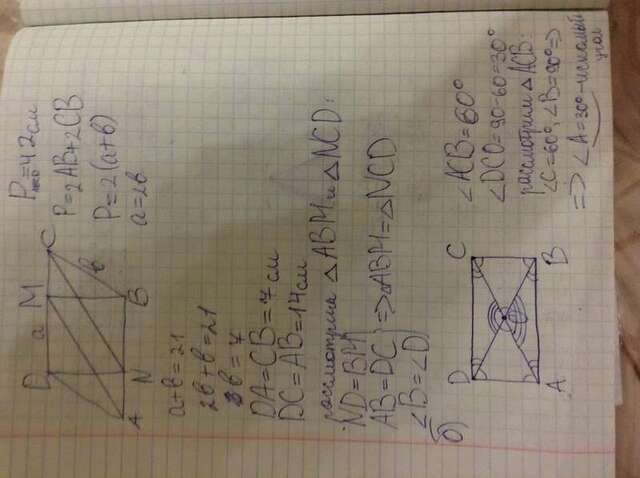 D M C
a
b
A N B
Pпар=42см
P=2AB+2CB
P=2(a+b)
a=2b
a+b=21
2b+b=21
3b=7
DA=CB=7см
DC=AB=14см
рассмотрим △ABM и △NCD:
ND=BM
AB=DC
∠B=∠D
=>△ABM=△NCD
б)
D C
A B
∠ACB=60°
∠DCO=90-60=30°
рассмотрим △ACB:
∠C=60°, ∠B=90°=>
=> ∠A=30°-искомый
угол